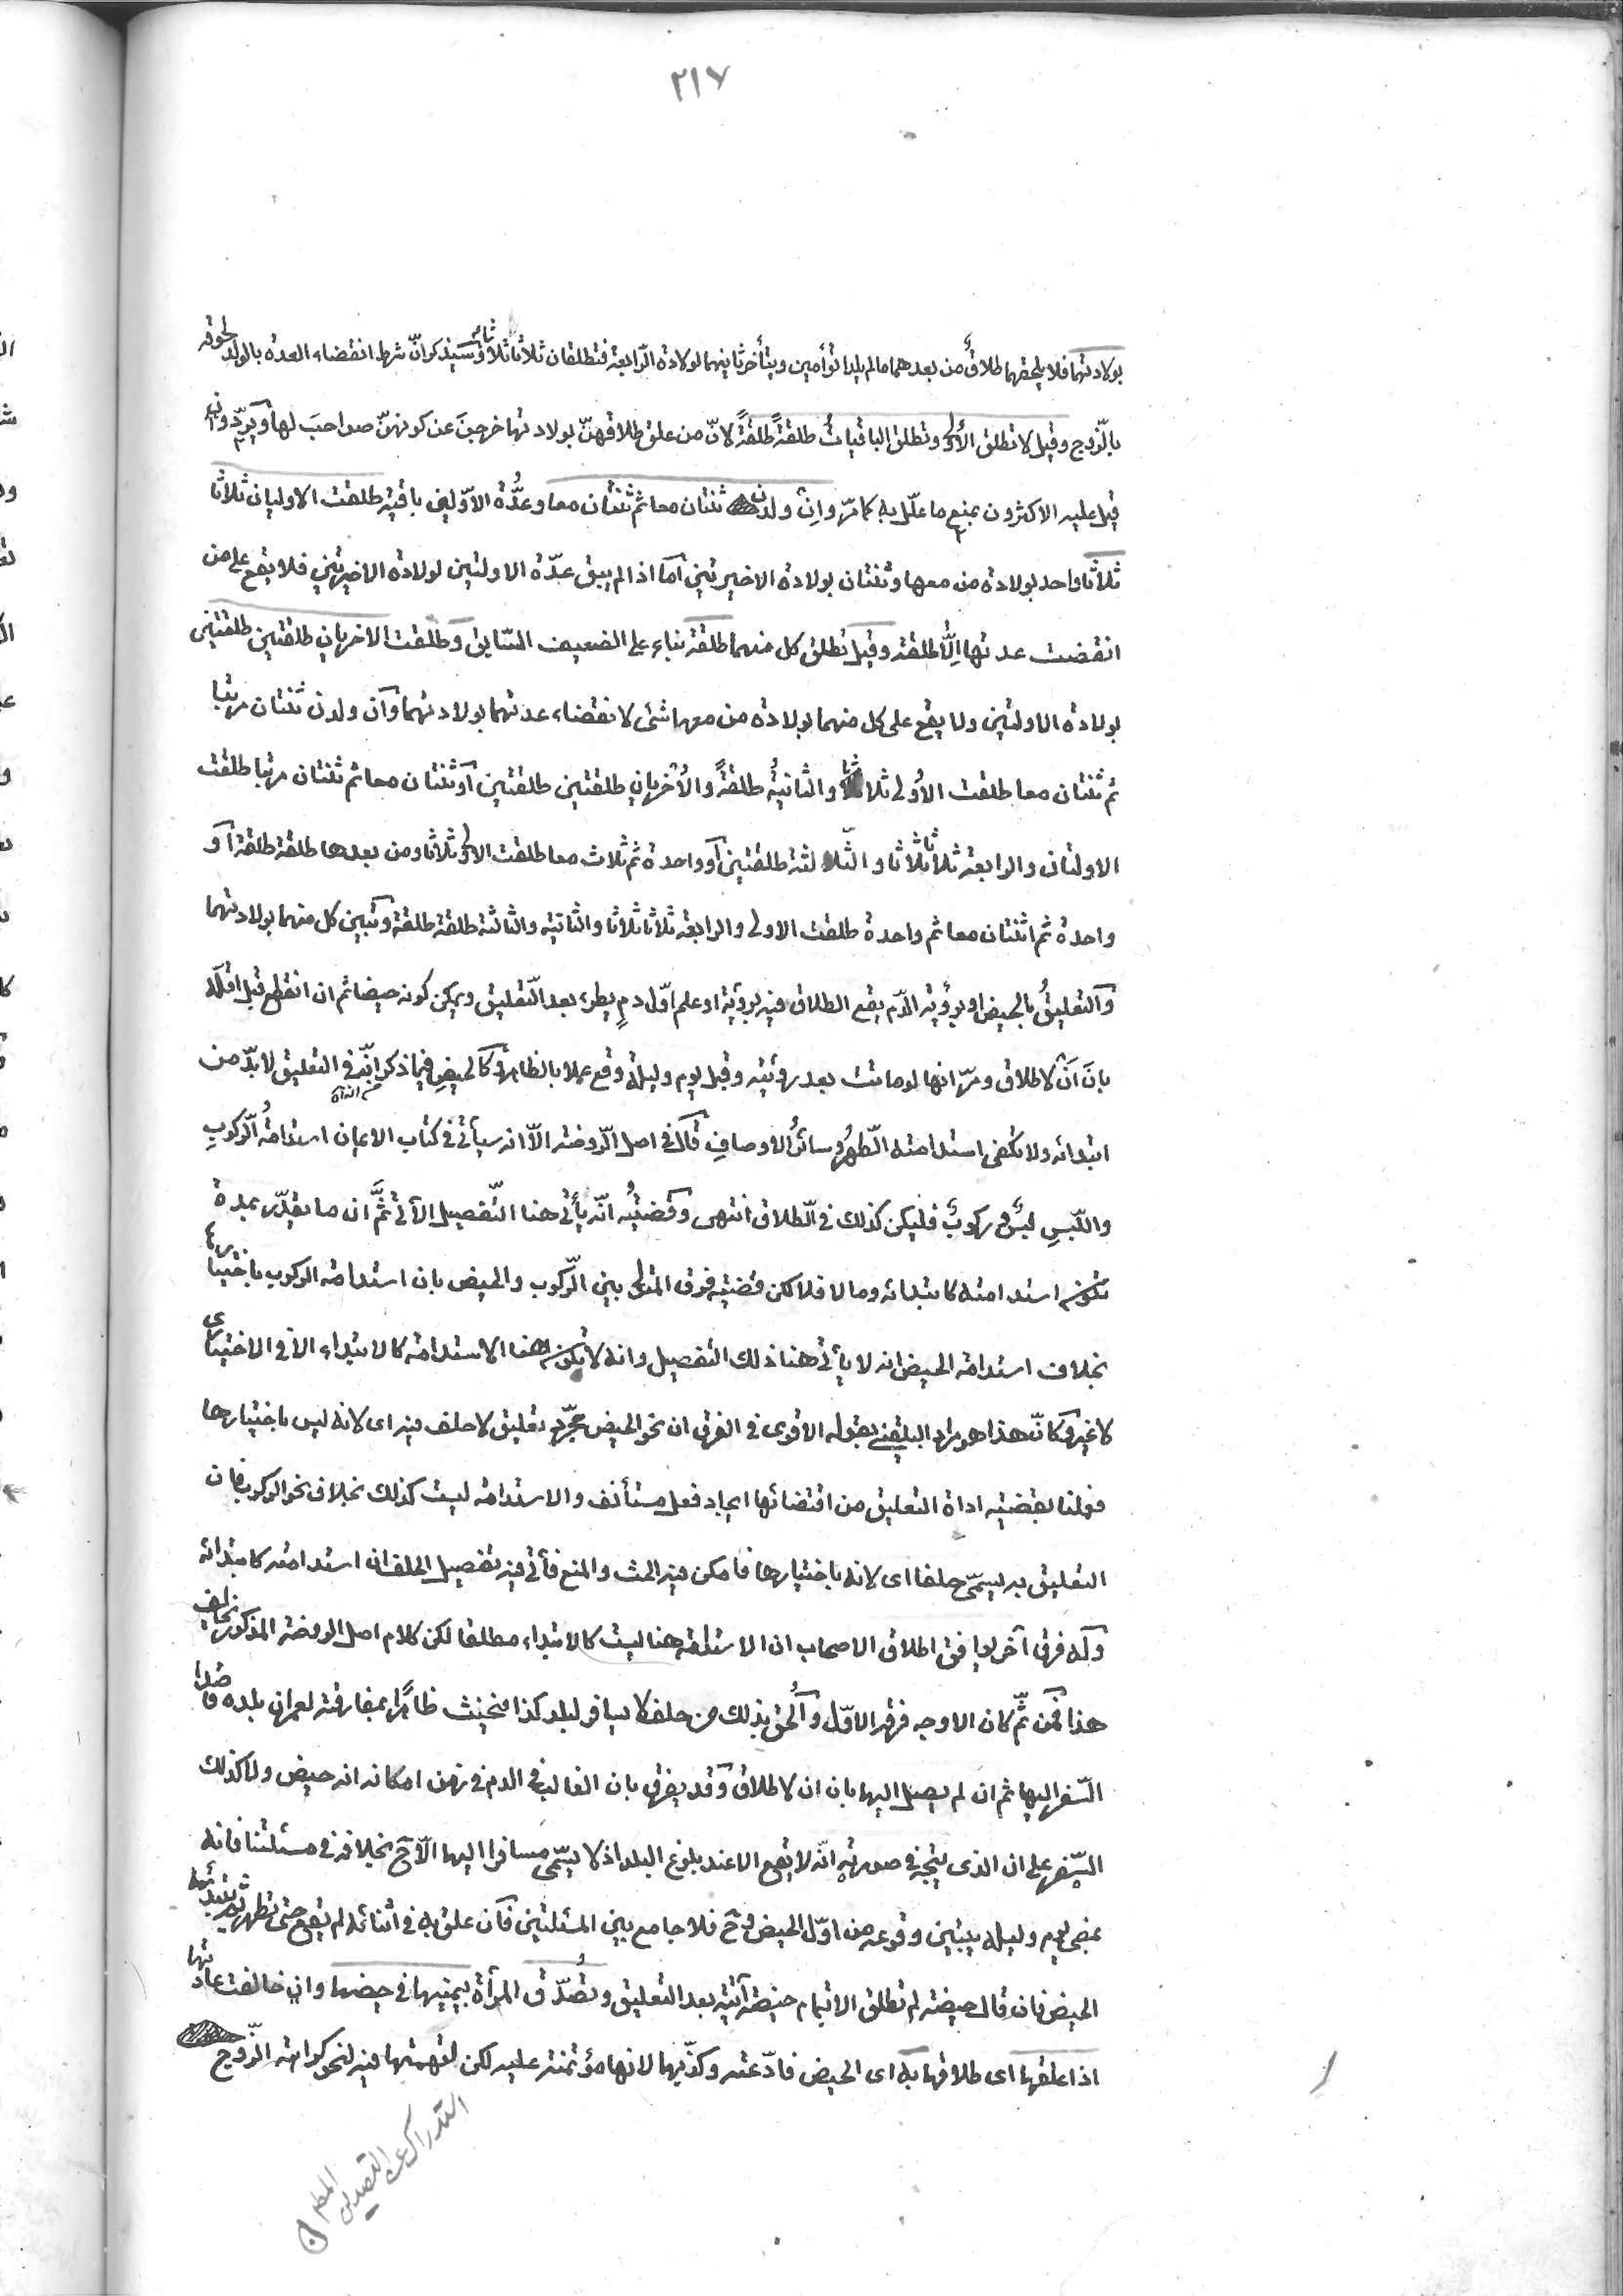 ٢١٧
بولادتهما فلا يلحقهما طلاق من بعدهما ما لم يلدا توأمين ويتأخر ثانيهما لولادة الرابعة فتطلقان ثلاثا ثلاثا وسيذكر ان شرط انقضاء العدة بالولد لحوقه
بالزوج وقيل لا تطلق الأولى وتطلق الباقيات طلقة طلقة لان من علق طلاقهن بولادتها خرجن عن كونهن صواحب لها ويرد وان
قيل عليه الاكثرون بمنع ما علل به كما مر وإن ولدن ثنتان معا ثم ثنتان معا وعدة الأولين باقية طلقت الاوليان ثلاثا
ثلاثا واحد بولادة من معها وثنتان بولادة الاخيرتين أما اذا لم يبق عدة الاولتين لولادة الاخيرتين فلا يقع على من
انقضت عدتها إلا طلقة وقيل تطلق كل منهما طلقة بناء على الضعيف السابق وطلقت الاخريان طلقتين طلقتين
بولادة الاولتين ولا يقع على كل منهما بولادة من معها شئ لانقضاء عدتهما بولادتهما وان ولدن ثنتان مرتبا
ثم ثنتان معا طلقت الأولى ثلاثا والثانية طلقة والأخريان طلقتين طلقتين أو ثنتان معا ثم ثنتان مرتبا طلقت
الاولتان والرابعة ثلاثا ثلاثا والثالثة طلقتين أو واحدة ثم ثلاث معا طلقت الاولى ثلاثا ومن بعدها طلقة طلقة أو
واحدة ثم اثنتان معا ثم واحدة طلقت الاولى والرابعة ثلاثا ثلاثا والثانية والثالثة طلقة طلقة وتبين كل منهما بولادتهما
والتعليق بالحيض او برؤية الدم يقع الطلاق فيه برؤية او علم اول دم يطرء بعد التعليق ويمكن كونه حيضا ثم ان انقطع قبل اقله
بان أن لا طلاق ومر انها لو ماتت بعد رؤيته وقبل يوم وليلة وقع عملا بالظاهر وكالحيض فيما ذكر انه في التعليق لا بد من
ابتدائه ولا تكفى استدامته الطهر وسائر الاوصاف قال في اصل الروضة الا انه سيأتي في كتاب الايمان استدامة الركوب
واللبس لبس وركوب فليكن كذلك في الطلاق انتهى وقضيته انه يأتي هنا التفصيل الآتي ثم ان ما يقدر بمدة
تكون استدامته كابتدائه وما لا فلا لكن قضية فرق المتولى بين الركوب والحيض بان استدامة الركوب باختياره
بخلاف استدامة الحيض انه لا يأتي هنا ذلك التفصيل وانه لا تكون هنا الاستدامة كالابتداء الا في الاختيارى
لا غير وكان هذا هو مراد البلقيني بقوله الاقوى في الفرق ان نحو الحيض مجرد تعليق لا حلف فيه اى لانه ليس باختيارها
فعملنا بقضية اداة التعليق من اقتضائها ايجاد فعل مستأنف والاستدامة ليست كذلك بخلاف نحو الركوب فان
التعليق به يسمى حلفا اى لانه باختيارها فامكن فيه الحث والمنع فأتى فيه تفصيل الحلف ان استدامته كابتدائه
وله فرق آخر يوافق اطلاق الاصحاب ان الاستدامة هنا ليست كالابتداء مطلقا لكن كلام اصل الروضة المذكور يخالف
هذا فمن ثم كان الاوجه فرقه الاول وألحق بذلك من حلف لا يسافر لبلد كذا فيحنث ظاهرا بمفارقته لعمران بلده قاصدا
السفر اليها ثم ان لم يصل اليها بان ان لا طلاق وقد يفرق بان الغالب في الدم في زمن امكانه انه حيض ولا كذلك
السفر على ان الذى يتجه في صورته انه لا يقع الا عند بلوغ البلد اذ لا يسمى مسافرا اليها الا ح بخلافه في مسئلتنا فانه
بمضى يوم وليلة يتبين وقوعه من اول الحيض وح فلا جامع بين المسئلتين فان علق به في أثنائه لم يقع حتى تطهر ثم تبتدئها
الحيض فان قال حيضة لم تطلق الا بتمام حيضة آتية بعد التعليق وتصدق المرأة بيمينها في حيضها وان خالفت عادتها
اذا علقها اى طلاقها به اى الحيض فادعته وكذبها لانها مؤتمنة عليه لكن لتهمتها فيه لنحو كراهة الزوج
استدراك على التصديق